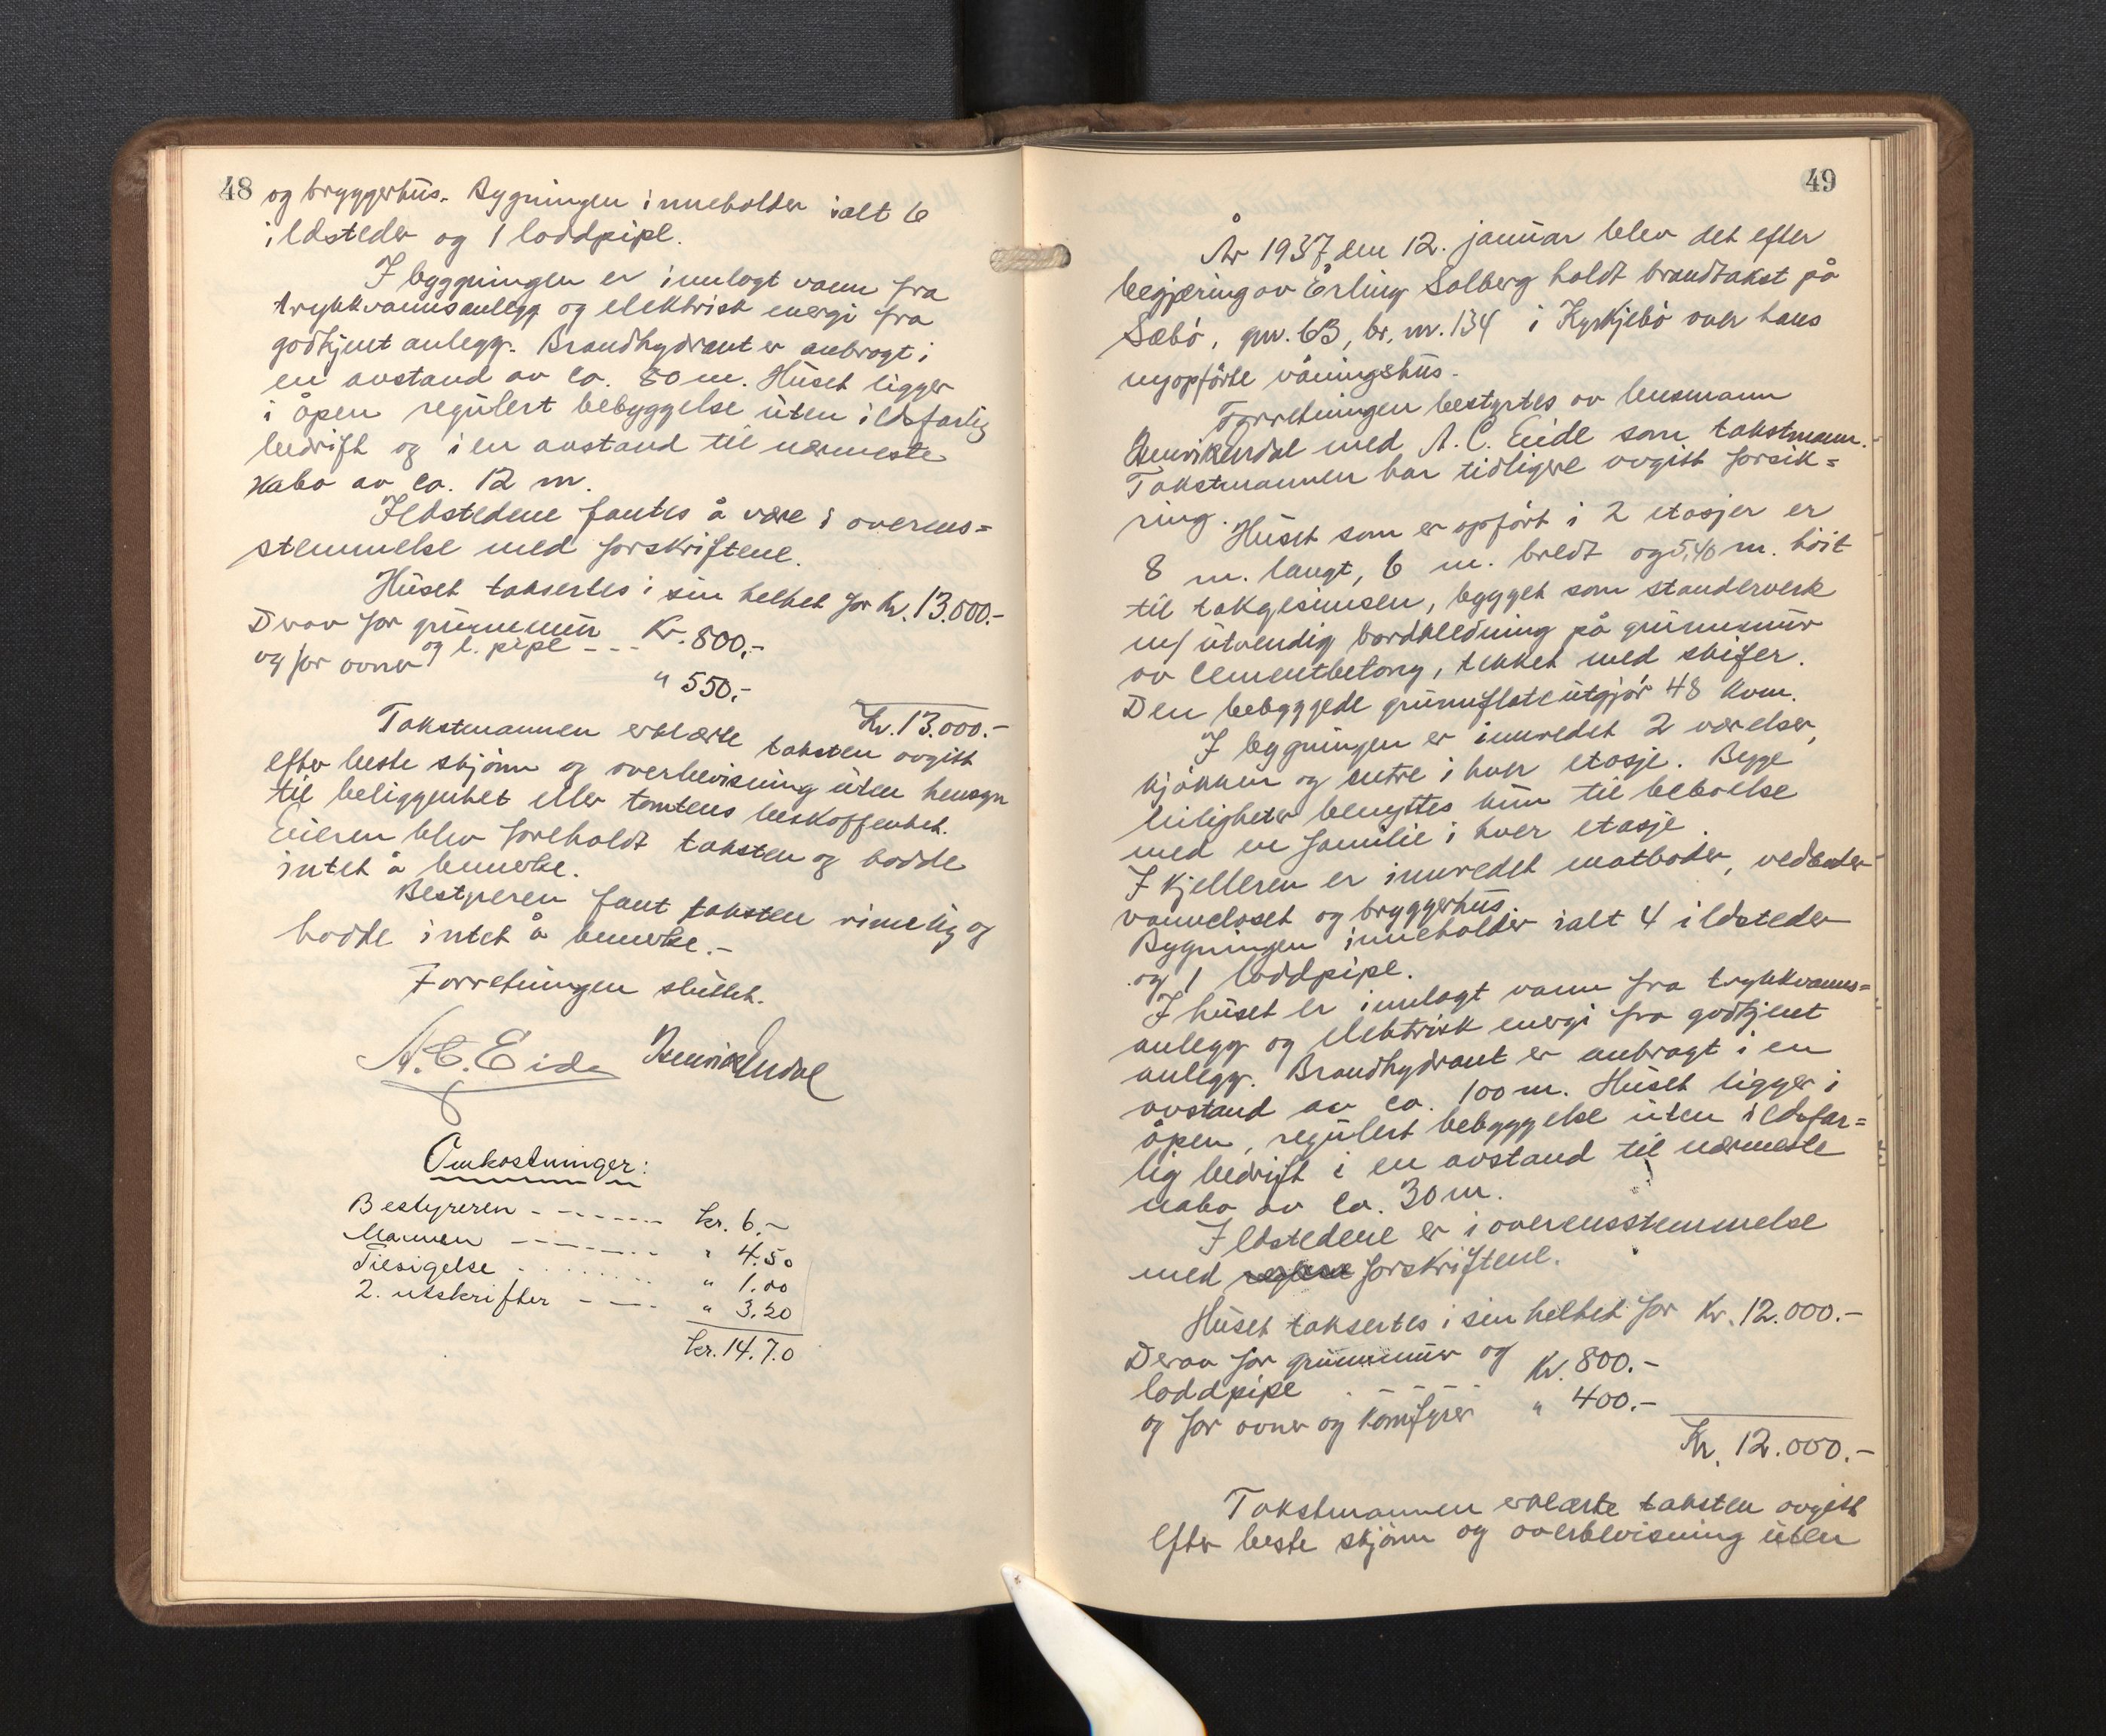 48
og bryggerhus. Bygningen inneholder ialt 6
ildsteder og 1 loddpipe.
I byggningen er innlagt vann fra
trykkvannsanlegg og elektrisk energi fra
godkjent anlegg. Brandhydrant er anbragt i
en avstand av ca. 80 m. Huset ligger
i åpen regulert bebyggelse uten ildsfarlig
bedrift og i en avstand til nærmeste
nabo av ca. 12 m.
Ildstedene fantes å være i overens=
stemmelse med forskriftene.
Huset taksertes i sin helhet for Kr. 13.000.-
Derav for grunnmur
og l. pipe - - - Kr. 800.-
og for ovner " 550.-
Kr. 13.000.-
Takstmannen erklærte taksten avgitt
efter beste skjønn og overbevisning uten hensyn
til beliggenhet eller tomtens beskaffenhet.
Eieren blev foreholdt taksten og hadde
intet å bemerke.
Bestyreren fant taksten rimelig og
hadde intet å bemerke.-
Forretningen sluttet.
A. C. Eide
Omkostninger:
Bestyreren - - - - - - - kr. 6.-
Mannen - - - - - - - " 4.50
Tilsigelse . . . . . . . . " 1.00
2. utskrifter - - - - " 3.20
kr. 14.70
49
År 1937, den 12. januar blev det efter
begjæring av Erling Solberg holdt brandtakst på
Sæbö, gnr. 63, br. nr. 134 i Kyrkjebö over hans
nyopförte våningshus.
Forretningen bestyrtes av lensmann
med A. C. Eide som takstmann.
Takstmannen har tidligere avgitt forsik=
ring.
Huset som er opfört i 2 etasjer er
8 m. langt, 6 m. bredt og 5,40 m. höit
til takgesimsen, bygget som standerverk
m/ utvendig bordkledning på grunnmur
av cementbetong, tekket med skifer.
Den bebyggede grunnflate utgjör 48 kvm.
I bygningen er innredet 2 værelser,
kjökken og entre i hver etasje. Begge
leiligheter benyttes kun til beboelse
med en familie i hver etasje.
I kjelleren er innredet matboder, vedboder
vanncloset og bryggerhus.
Bygningen inneholder ialt 4 ildsteder
og 1 loddpipe.
I huset er innlagt vann fra trykkvanns=
anlegg og elektrisk energi fra godkjent
anlegg. Brandhydrant er anbragt i en
avstand av ca. 100 m. Huset ligger i
åpen, regulert bebyggelse uten ildsfar=
lig bedrift i en avstand til nærmeste
nabo av ca. 30 m.
Ildstedene er i overensstemmelse
med forskriftene.
Huset taksertes i sin helhet for Kr. 12.000.-
Derav for grunnmur og
loddpipe . - - - - Kr. 800.-
og for ovner og komfyrer " 400.-
Kr. 12.000.-
Takstmannen erklærte taksten avgitt
efter beste skjönn og overbevisning uten